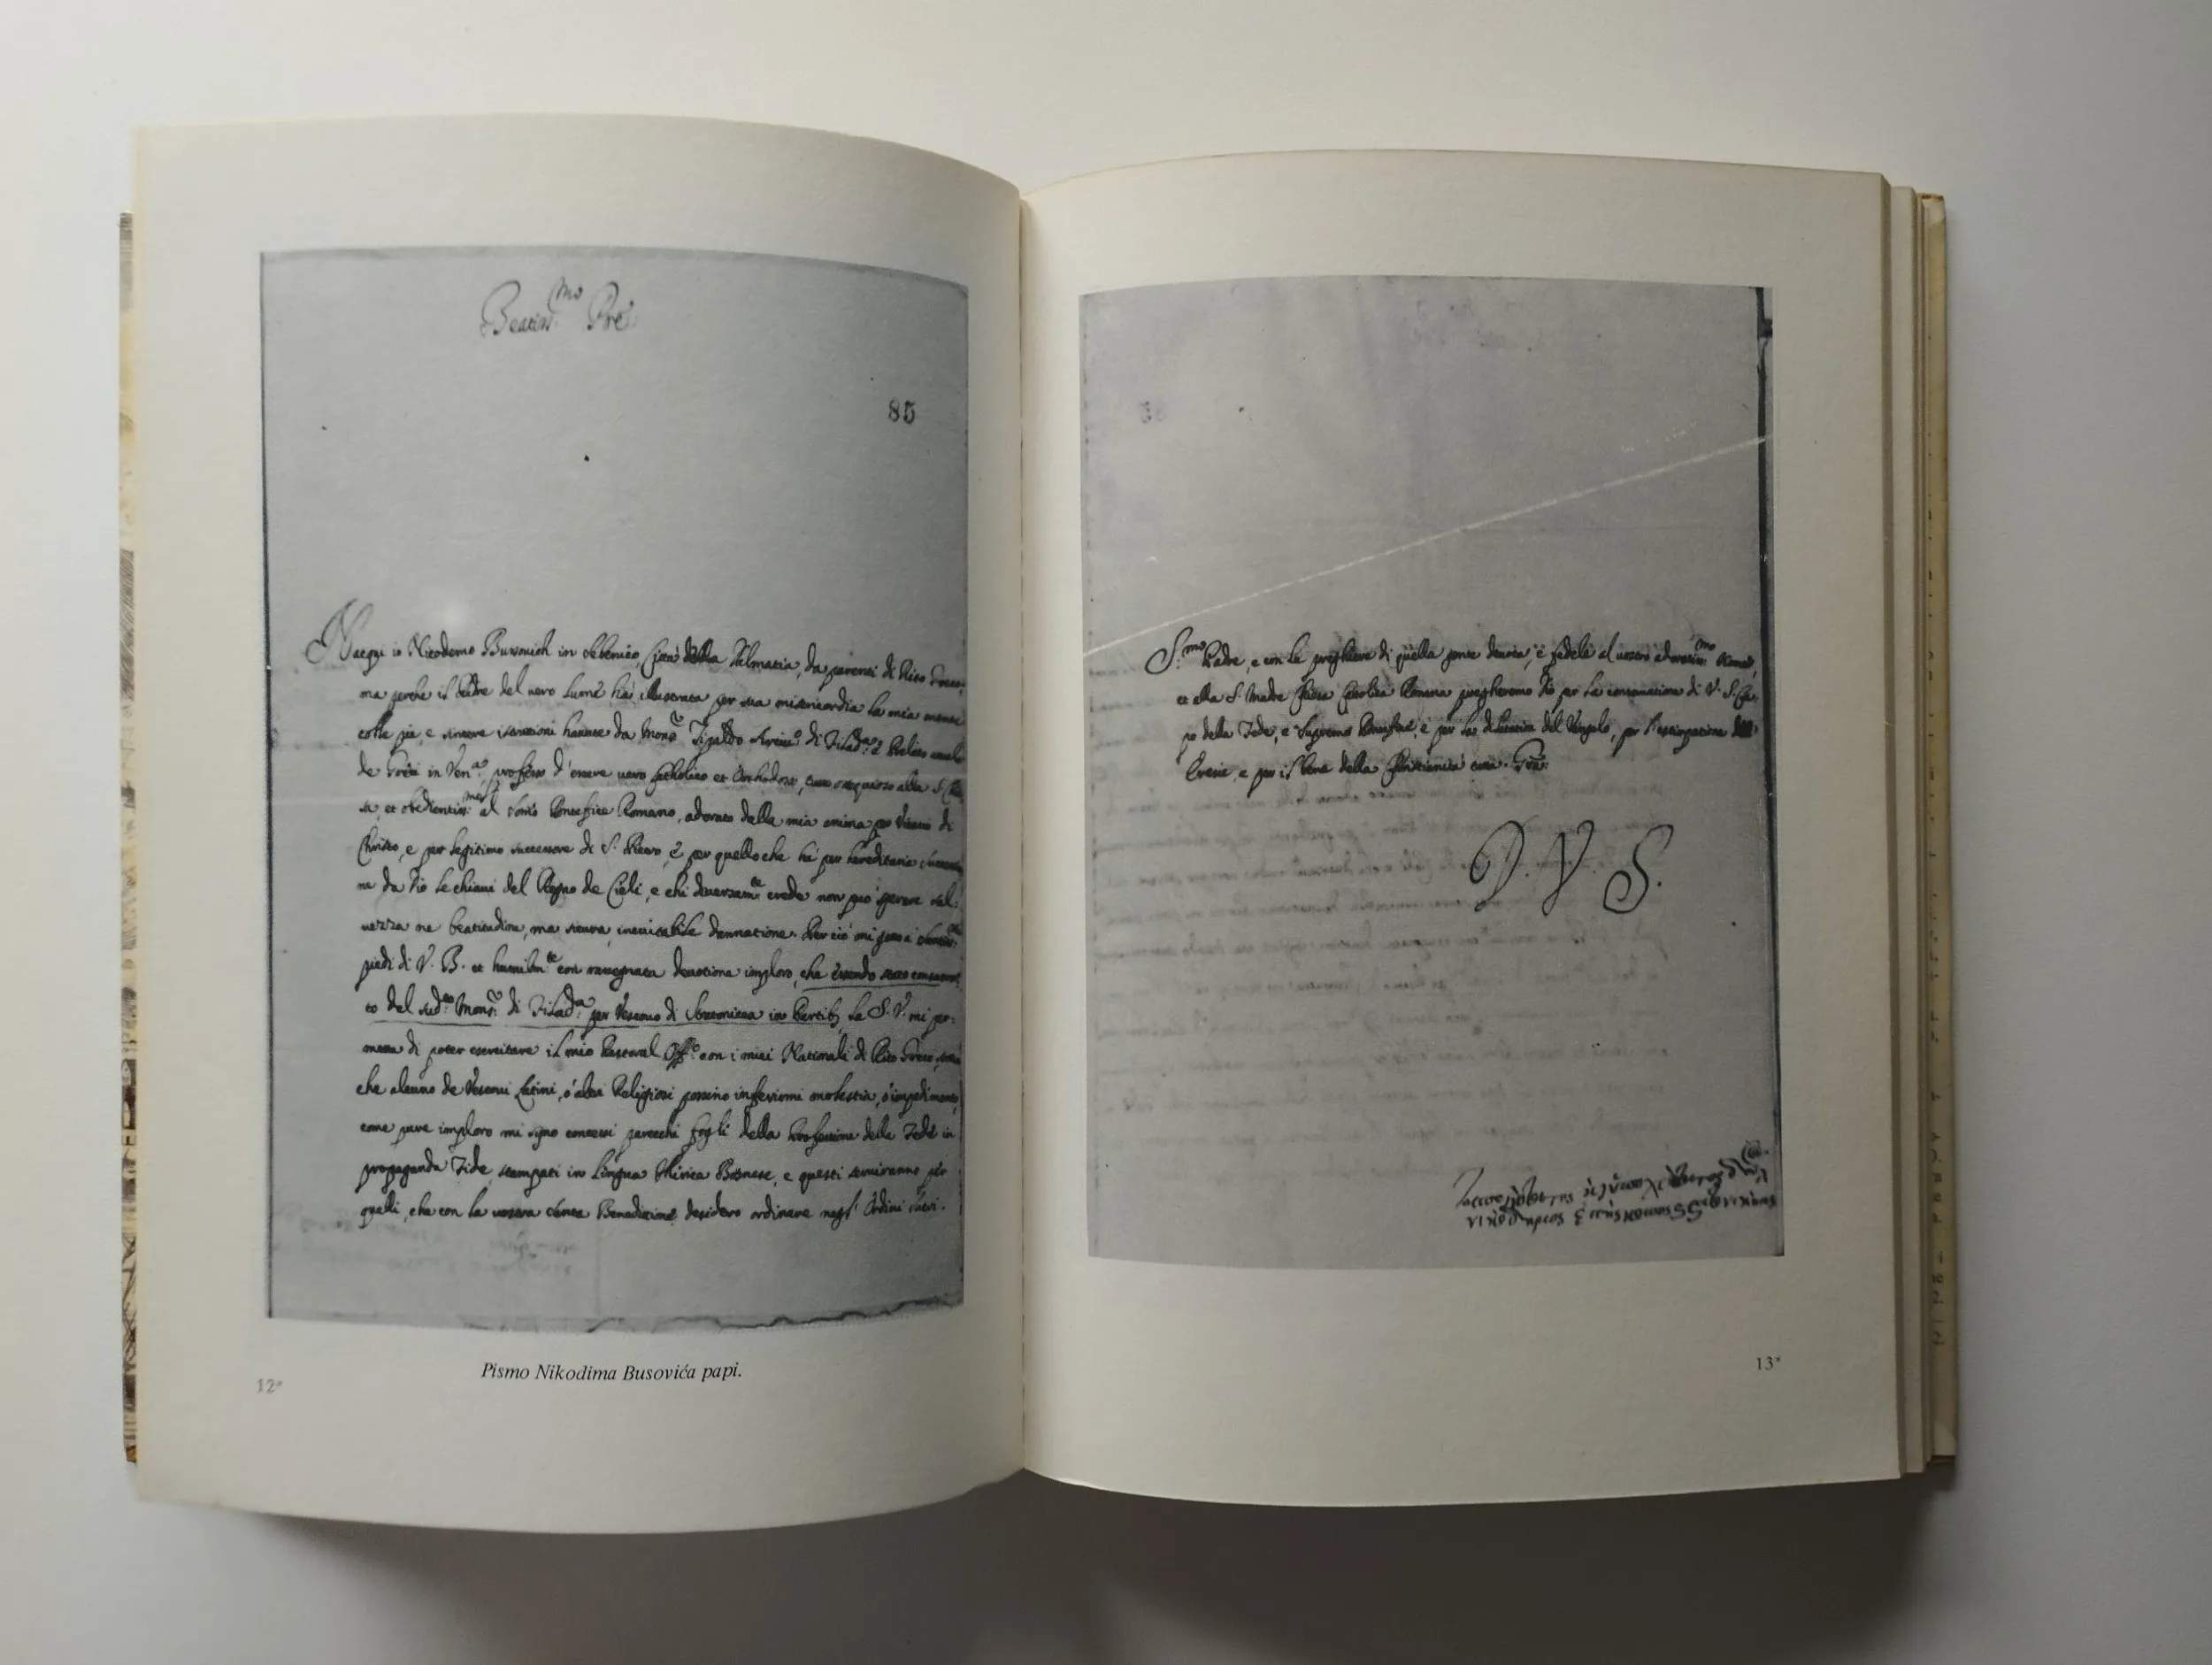 Beatiss.mo Pre
85
Nacqui io Nicodemo Bussovich in Sebenico Città della Dalmatia, da parenti di Rito Greco,
ma perche il Padre del vero Lume hà illustrata per sua misericordia la mia mente
colle pie, e sincere istruzioni havute da Mons.r Tipaldo Arciu.o di Filad.a e Prelato
de Greci in Ven.a professo d'essere vero Catholico et Orthodoxo, ossequioso alla S.
et obedientiss.mo al Som.o Pontefice Romano, adorato dalla mia anima per Vicario di
Christo, e per legitimo successore di S. Pietro, e per quello che hà per hereditaria
ne da Dio le chiavi del Regno de Cieli, e chi diversam.te crede non può sperare sal:
uezza ne beatitudine, ma sicura, inevitabile dannatione. Per ciò mi getto a
piedi di V. B. et humilm.te con rassegnata devotione imploro, che essendo stato consacra
to dal sud.o Mons.r di Filad.a per Vescovo di in Partib. la S. V. mi per:
metta di poter esercitare il mio Pastoral Off.o con i miei Nationali di Rito Greco,
che alcuno de Vescovi Latini, ò altri Religiosi possino inferirmi molestia, ò impedimento,
come pure imploro mi sijno concessi parecchi fogli della Professione della Fede in
propaganda Fide stampati in lingua Illirica Bosnese, e questi serviranno per
quelli, che con la vostra santa Benedizione desidero ordinare negl' Ordini Sacri.
12*
Pismo Nikodima Busovića papi.
S.mo Padre, e con le preghiere di quella gente devota, e fedele al vostro adoratiss.mo Nome,
et alla S. Madre Chiesa Catolica Romana pregheremo Dio per la conservatione di V. S. Ca:
po della Fede, e Supremo Pontefice, e per la del Vangelo, per l'estirpatione dell'
Eresie, e per il bene della Christianità tutta. Gra:
D. V. S.
νικόδημος ἐπίσκοπος
13*